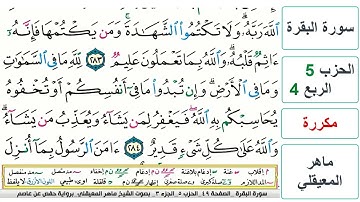 سورة البقرة
الحزب 5
الربع 4
مكررة
ماهر
المعيقلي
ٱللَّهَ رَبَّهُۥ وَلَا تَكْتُمُوا۟ ٱلشَّهَٰدَةَ وَمَن يَكْتُمْهَا فَإِنَّهُۥٓ
ءَاثِمٌ قَلْبُهُۥ وَٱللَّهُ بِمَا تَعْمَلُونَ عَلِيمٌ ٢٨٣ لِّلَّهِ مَا فِى ٱلسَّمَٰوَٰتِ
وَمَا فِى ٱلْأَرْضِ وَإِن تُبْدُوا۟ مَا فِىٓ أَنفُسِكُمْ أَوْ تُخْفُوهُ
يُحَاسِبْكُم بِهِ ٱللَّهُ فَيَغْفِرُ لِمَن يَشَآءُ وَيُعَذِّبُ مَن يَشَآءُ
وَٱللَّهُ عَلَىٰ كُلِّ شَىْءٍ قَدِيرٌ ٢٨٤ ءَامَنَ ٱلرَّسُولُ بِمَآ أُنزِلَ
سورة البقرة، الصفحة ٤٩، الحزب ٥، الجزء ٣، بصوت الشيخ ماهر المعيقلي، برواية حفص عن عاصم